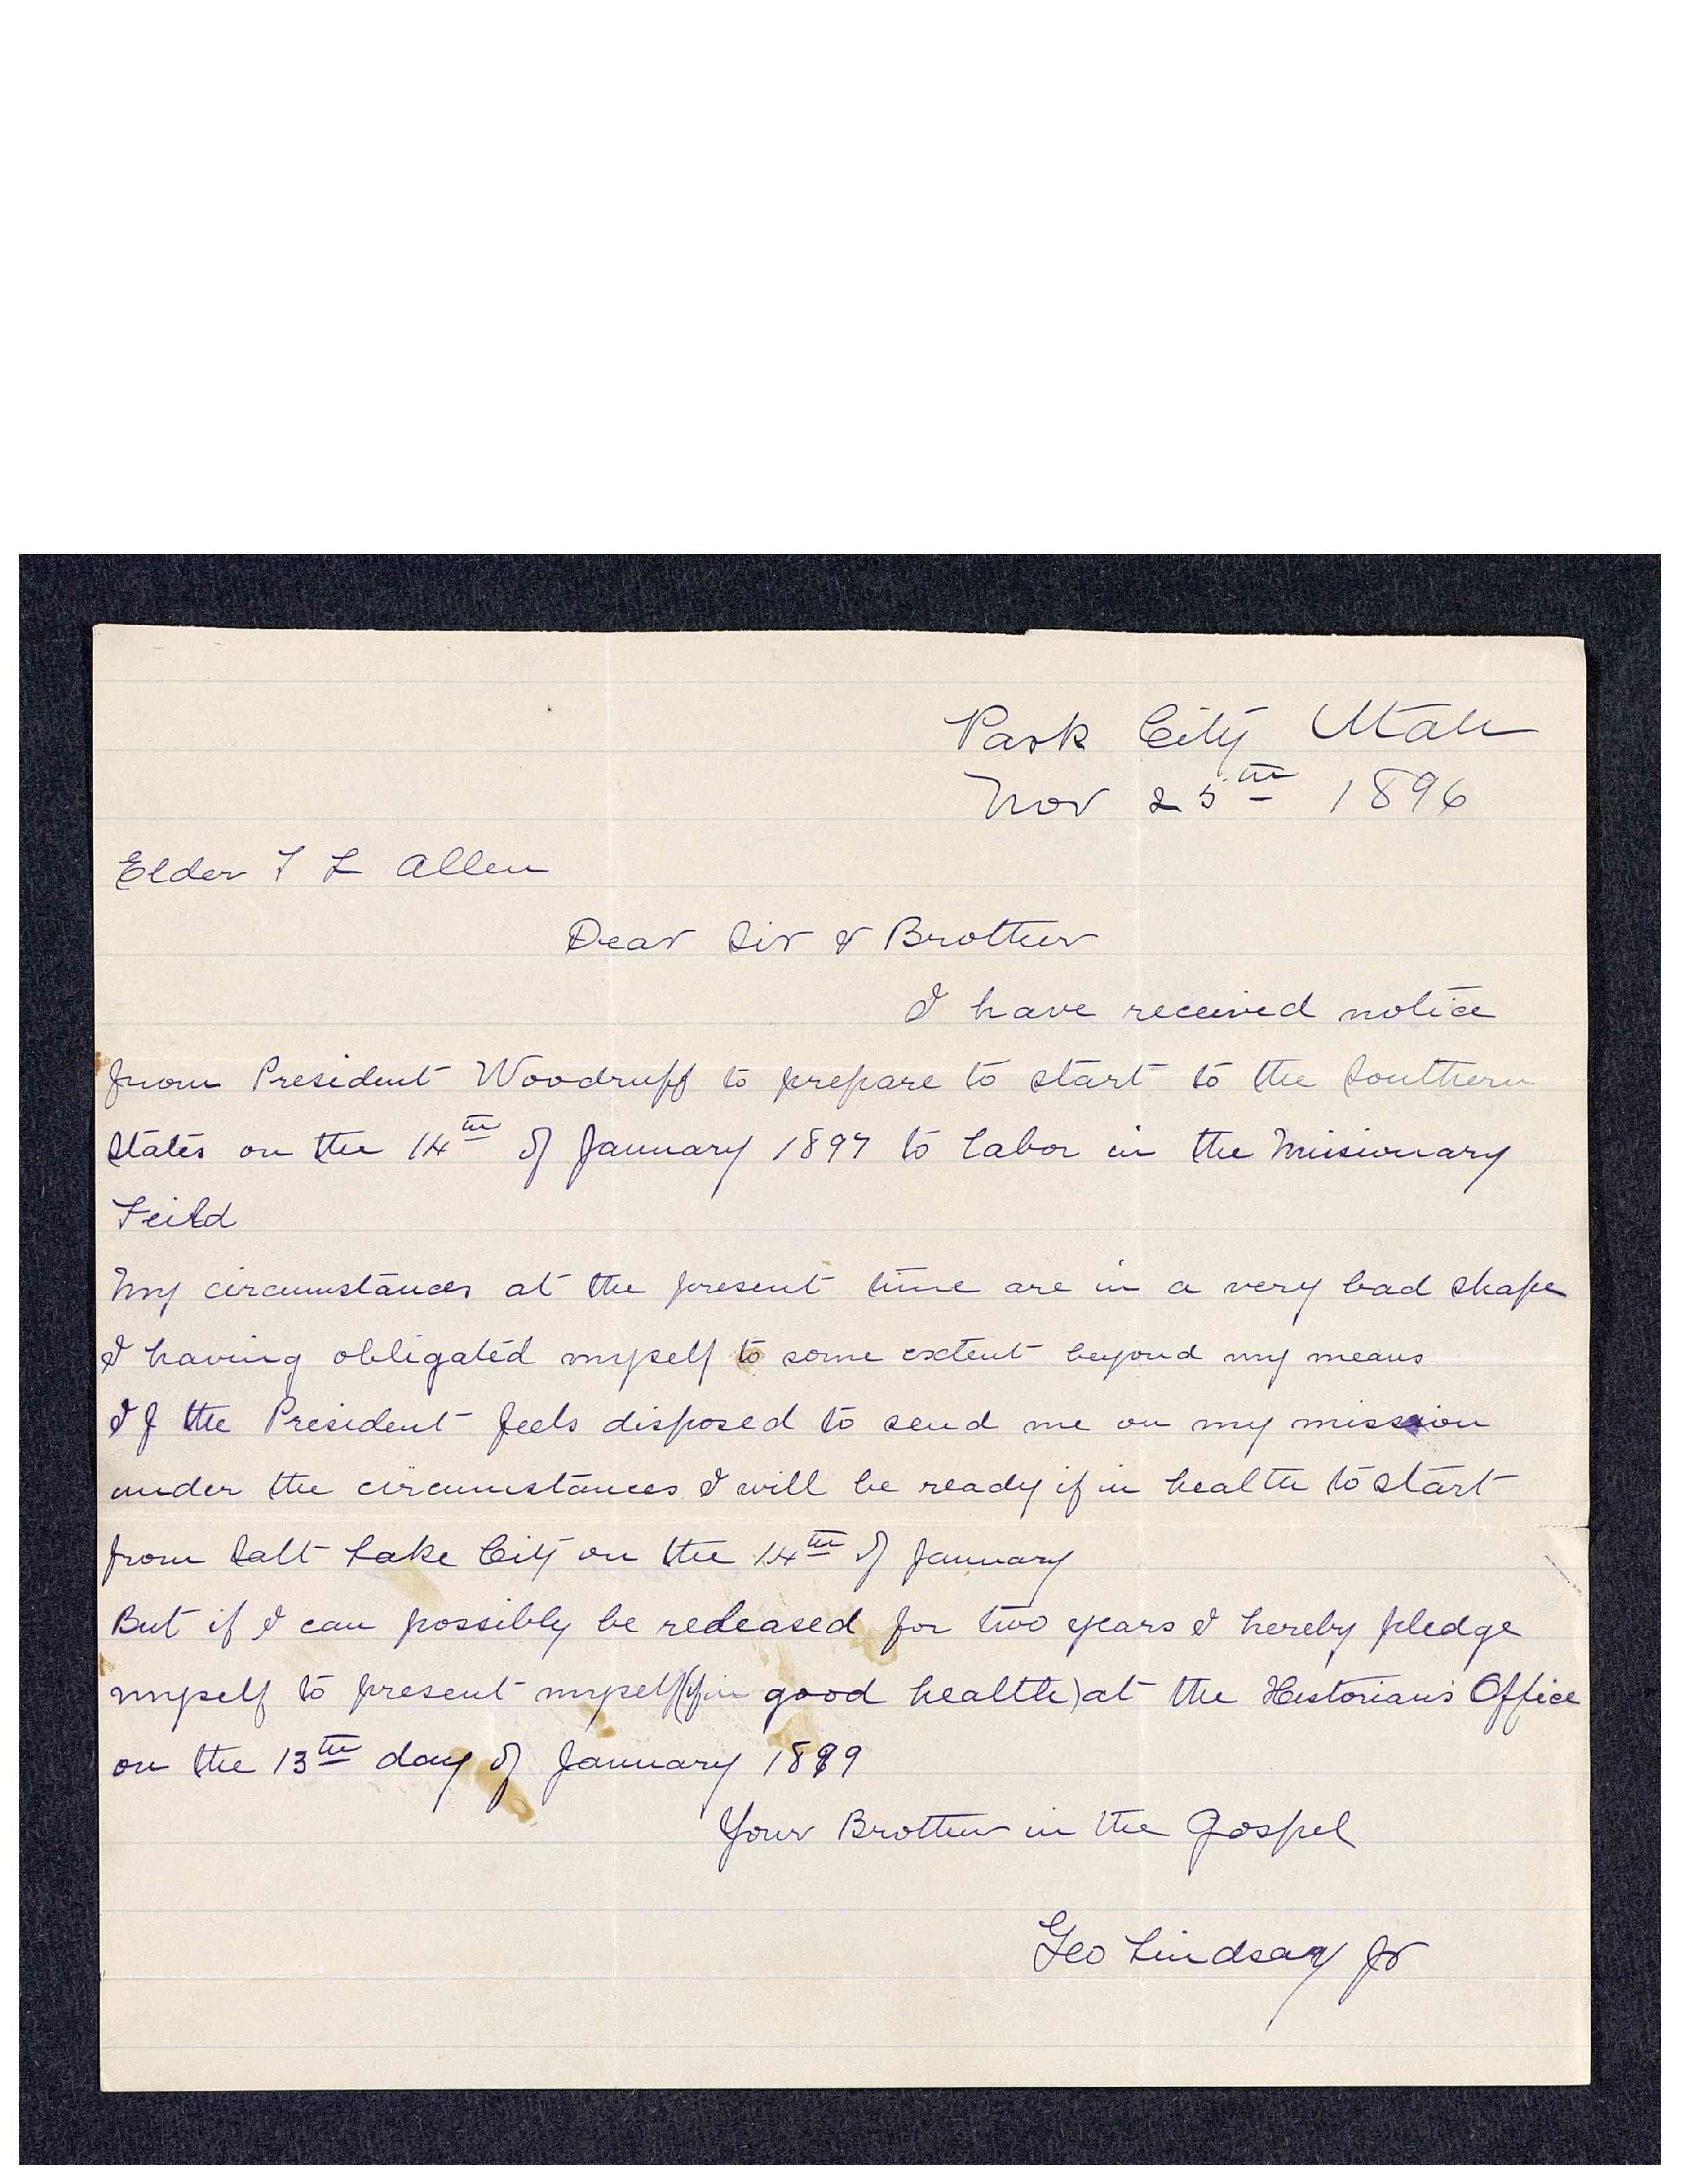 Park City Utah
Nov 25th 1896
Elder T L Allen
Dear Sir & Brother
I have received notice
from President Woodruff to prepare to start to the Southern
States on the 14th of January 1897 to labor in the Missionary
Feild
My circumstances at the present time are in a very bad shape
I having obligated myself to some extent beyond my means
If the President feels disposed to send me on my mission
under the circumstances I will be ready if in health to start
from Salt Lake City on the 14th of January
But if I can possibly be released for two years I hereby pledge
myself to present myself (if in good health) at the Historians Office
on the 13th day of January 1899
Your Brother in the Gospel
Geo Lindsay Jr